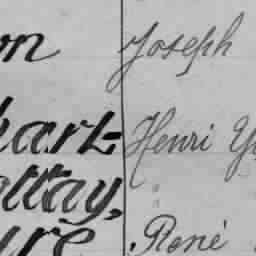 on Joseph
hart- Henri
ottay,
uré René